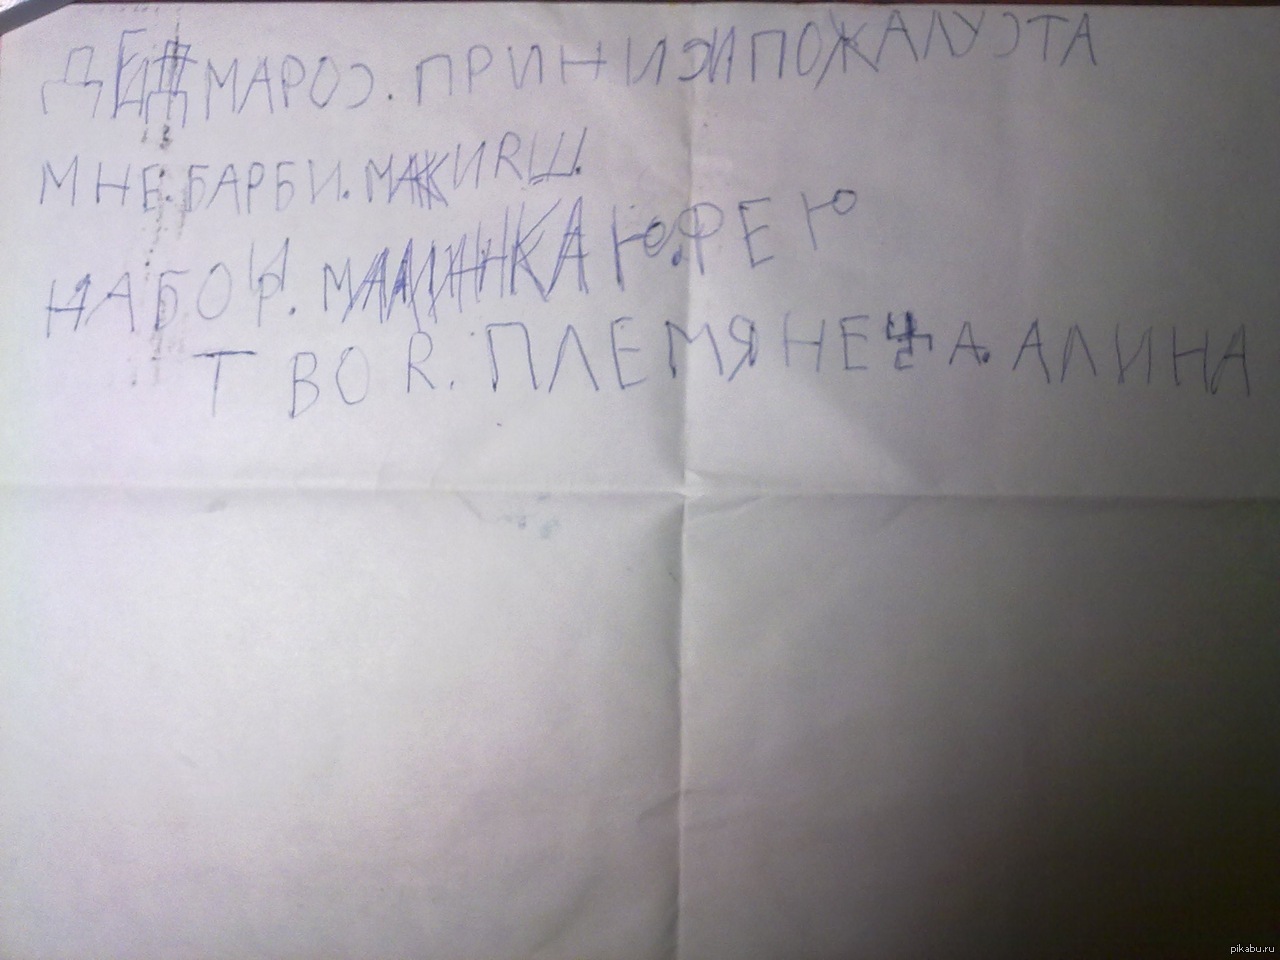 ДЕД МАРОС. ПРИНИСИ ПОЖАЛУСТА
МНЕ. БАРБИ. МАЖИЯШ.
НАБОР. МАЛИНКАЮ. ФЕЮ
ТВОЯ. ПЛЕМЯНЕЧА. АЛИНА
pikabu.ru